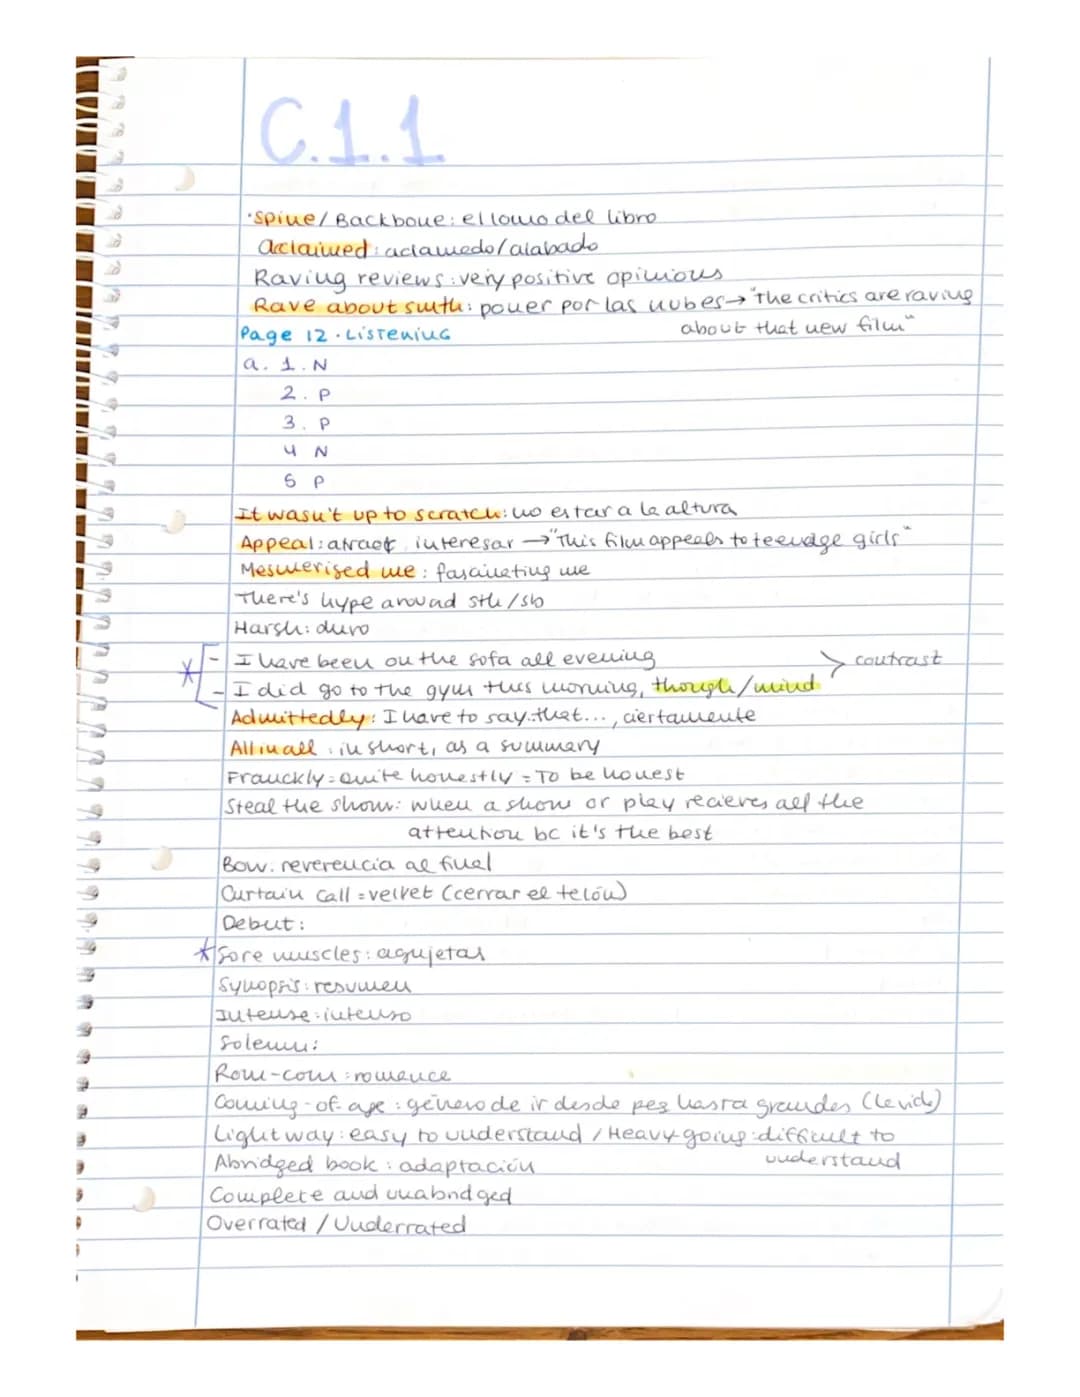 C.1.1
·Spine/Backbone: el lomo del libro
Acclaimed: aclamado/alabado
Raving reviews: very positive opinions
Rave about smth: poner por las nubes→ "the critics are raving
about that new film"
Page 12 · LISTENING
a. 1. N
2. P
3. P
4 N
5 P
It wasn't up to scratch: no estar a la altura
Appeal: atract, interesar → "This film appeals to teenage girls"
Mesmerised me: fascinating me
There's hype around sth/sb
Harsh: duro
- I have been on the sofa all evening > contrast
* - I did go to the gym this morning, though/mind
Admittedly: I have to say that..., ciertamente
All in all: in short, as a summary
Franckly = Quite honestly = To be honest
Steal the show: when a show or play recieves all the
attention bc it's the best
Bow: reverencia al final
Curtain call = velvet (cerrar el telón)
Debut:
* Sore muscles: agujetas
Synopsis: resumen
Intense: intenso
Solemn:
Rom-com: romance
Coming-of-age: género de ir desde peq hasta grandes (la vida)
Light way: easy to understand / Heavy going: difficult to
understand
Abridged book: adaptación
Complete and unabridged
Overrated / Underrated